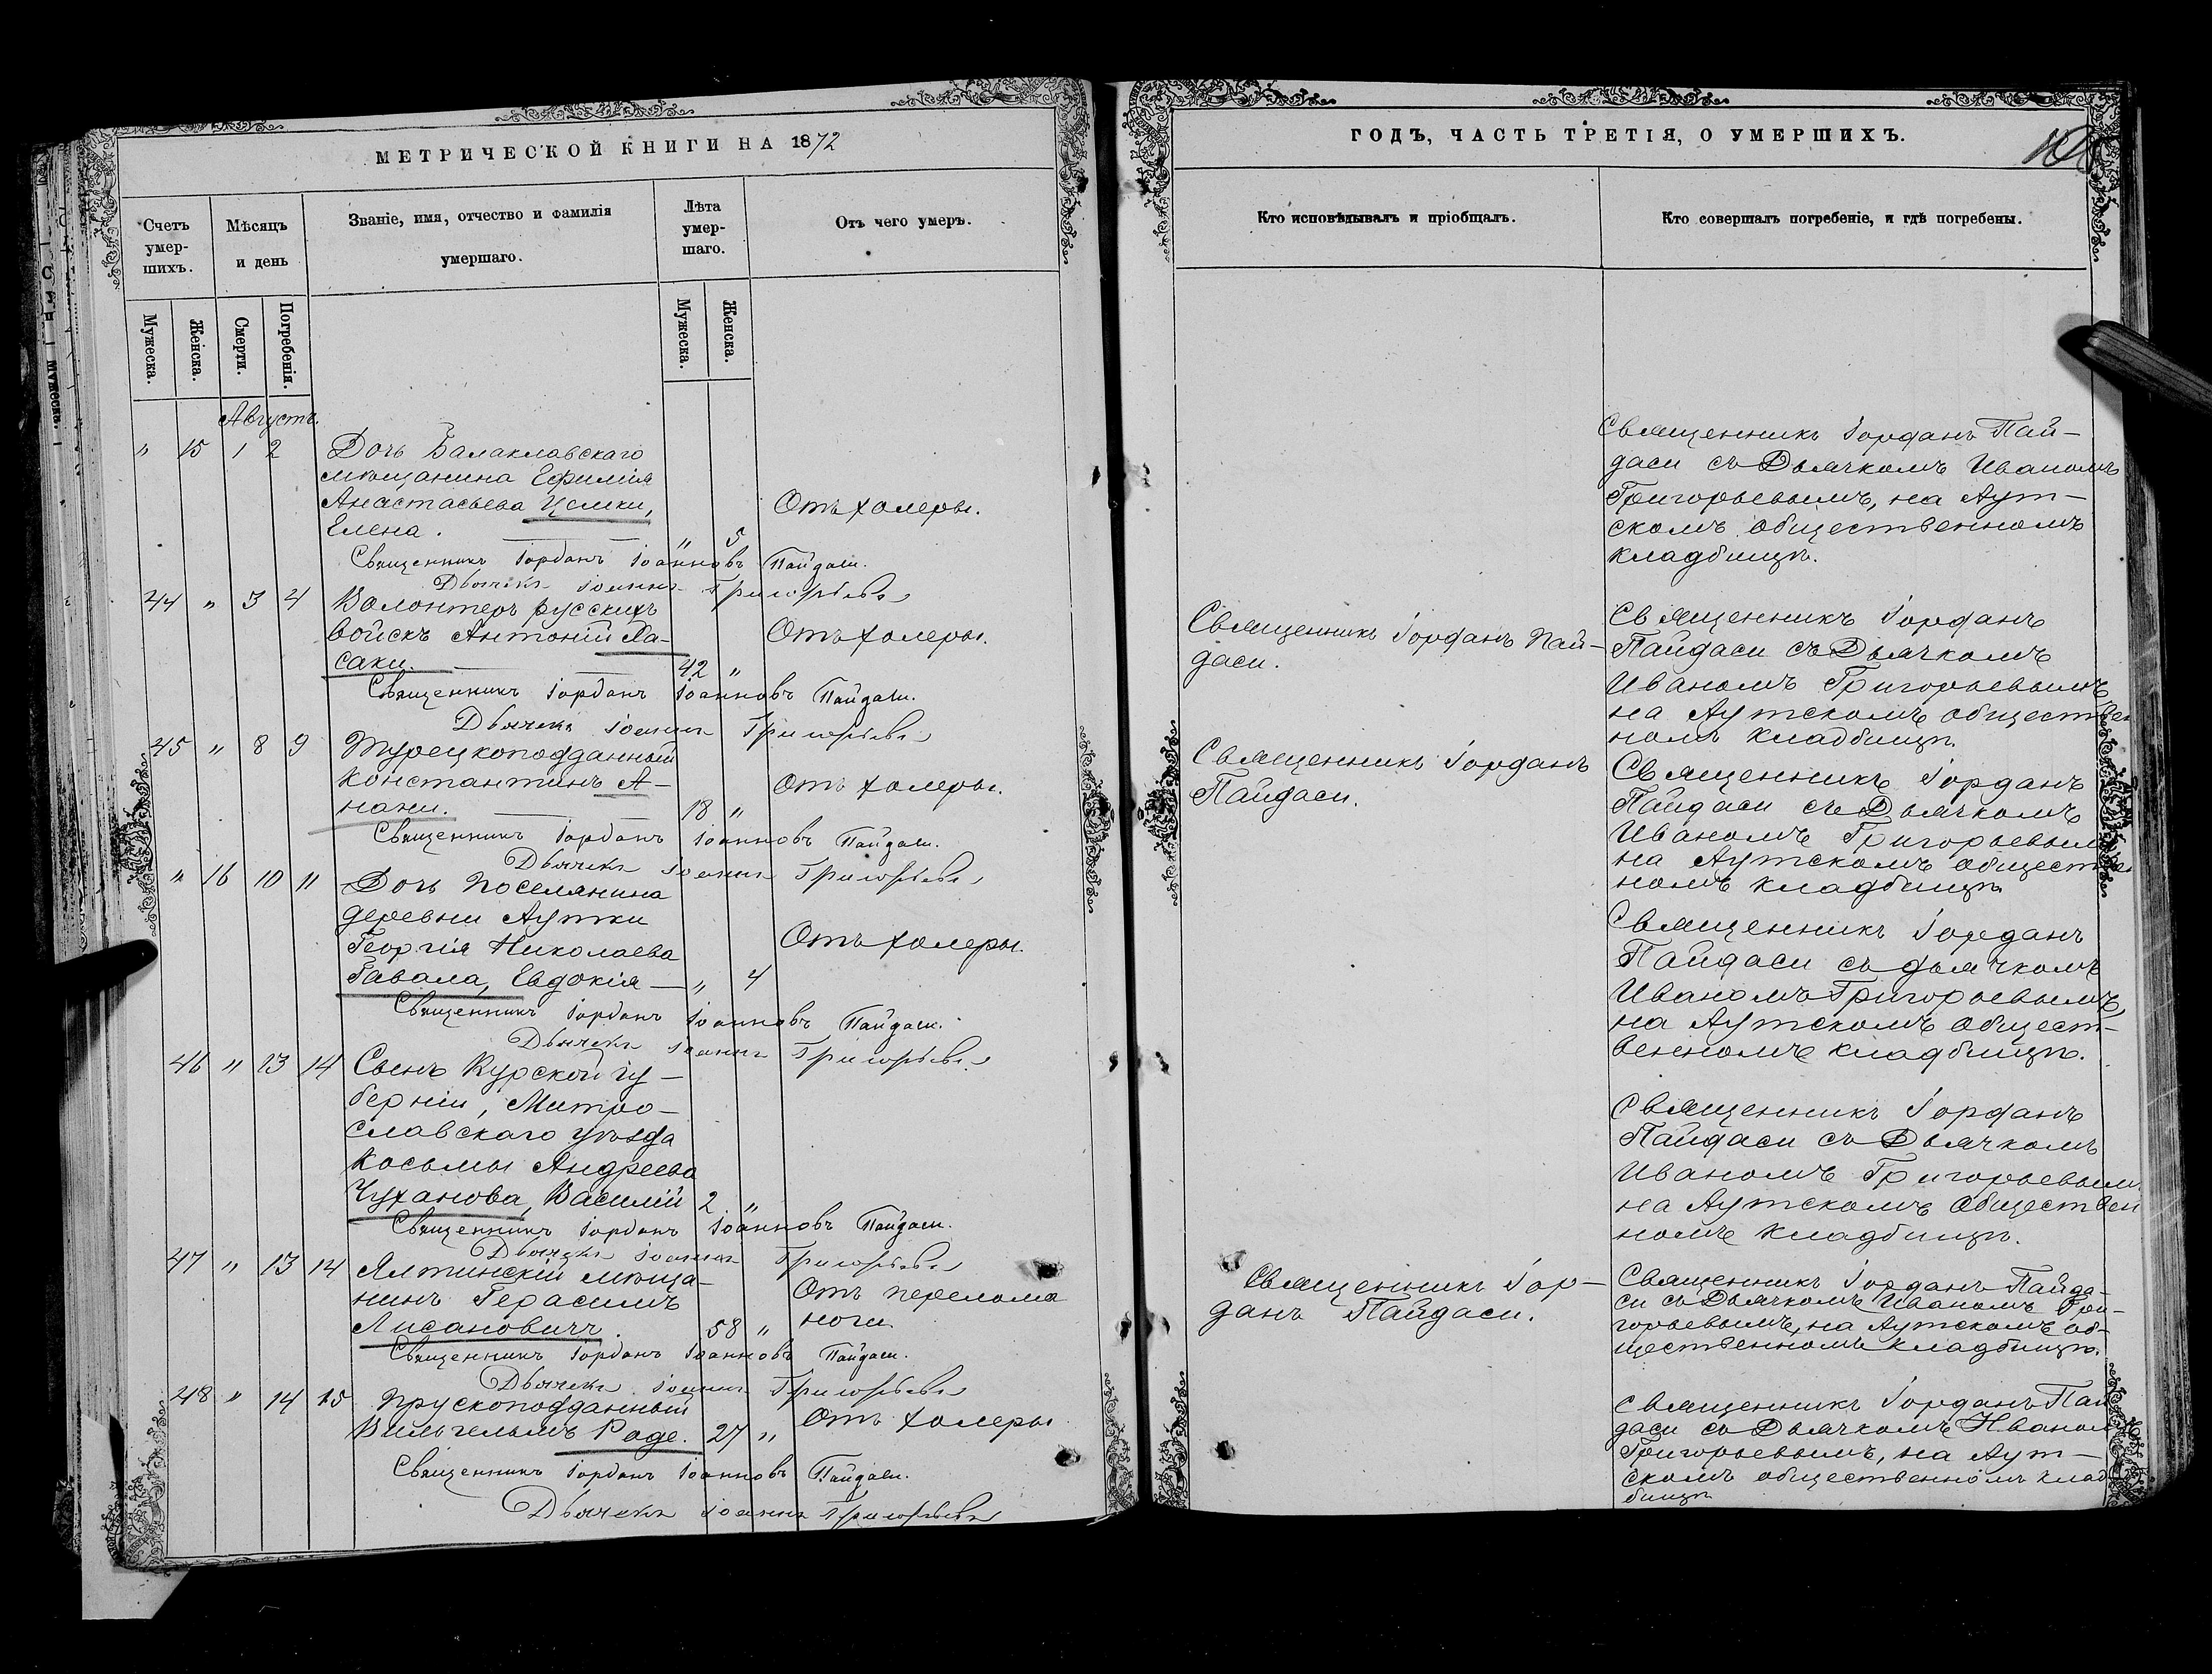 МЕТРИЧЕСКОЙ КНИГИ НА 1872
Счетъ умер-шихъ.
Мѣсяцъ и день
Званіе, имя, отчество и фамилія умершаго.
Лѣта умер-шаго.
Отъ чего умеръ.
Мужеска.
Женска.
Смерти.
Погребенія.
Мужеска.
Женска.
Августъ.
" 15 1 2 Дочь Балаклавскаго
мѣщанина Ефимія
Анастасьева Целики, Отъ холеры.
Елена. " 5
Священникъ Іорданъ Іоанновъ Пайдаси.
Дьячекъ Іоаннъ Григорьевъ
44 " 3 4 Волонтеръ русскихъ
войскъ Антоній Ла- Отъ холеры.
саки. 42 "
Священникъ Іорданъ Іоанновъ Пайдаси.
Дьячекъ Іоаннъ Григорьевъ
45 " 8 9 Турецкоподданный
Константинъ А- Отъ холеры.
нани. 18 "
Священникъ Іорданъ Іоанновъ Пайдаси.
Дьячекъ Іоаннъ Григорьевъ
" 16 10 11 Дочь поселянина
деревни Аутки
Георгія Николаева Отъ холеры.
Гавала, Евдокія — " 4
Священникъ Іорданъ Іоанновъ Пайдаси.
Дьячекъ Іоаннъ Григорьевъ
46 " 13 14 Сынъ Курской гу-
берніи, Митро-
славскаго уѣзда
Косьмы Андреева
Чуханова, Василій 2 "
Священникъ Іорданъ Іоанновъ Пайдаси.
Дьячекъ Іоаннъ Григорьевъ
47 " 13 14 Ялтинскій мѣща-
нинъ Герасимъ Отъ перелома
Лисановичъ. 58 " ноги
Священникъ Іорданъ Іоанновъ Пайдаси.
Дьячекъ Іоаннъ Григорьевъ
48 " 14 15 Прускоподданный
Вильгельмъ Роде. 27 " Отъ холеры
Священникъ Іорданъ Іоанновъ Пайдаси.
Дьячекъ Іоаннъ Григорьевъ
ГОДЪ, ЧАСТЬ ТРЕТІЯ, О УМЕРШИХЪ.
Кто исповѣдывалъ и пріобщалъ.
Кто совершалъ погребеніе, и гдѣ погребены.
Священникъ Іорданъ Пай-
даси съ Дьячкомъ Иваномъ
Григорьевымъ, на Аут-
скомъ общественномъ
кладбищѣ.
Священникъ Іорданъ Пай-
даси.
Священникъ Іорданъ
Пайдаси съ Дьячкомъ
Иваномъ Григорьевымъ
на Аутскомъ обществен
номъ кладбищѣ.
Священникъ Іорданъ
Пайдаси.
Священникъ Іорданъ
Пайдаси съ Дьячкомъ
Иваномъ Григорьевымъ
на Аутскомъ обществен
номъ кладбищѣ
Священникъ Іорданъ
Пайдаси съ дьячкомъ
Иваномъ Григорьевымъ,
на Аутскомъ общест-
венномъ кладбищѣ.
Священникъ Іорданъ
Пайдаси съ Дьячкомъ
Иваномъ Григорьевым
на Аутскомъ обществен
номъ кладбищѣ.
Священникъ Іор-
данъ Пайдаси.
Священникъ Іорданъ Пайда-
си съ Дьячкомъ Иваномъ Гри-
горьевымъ, на Аутскомъ об-
щественномъ кладбищѣ.
Священникъ Іорданъ Пай
даси съ Дьячкомъ Иваном
Григорьевымъ, на Аут-
скомъ общественномъ клад
бищѣ